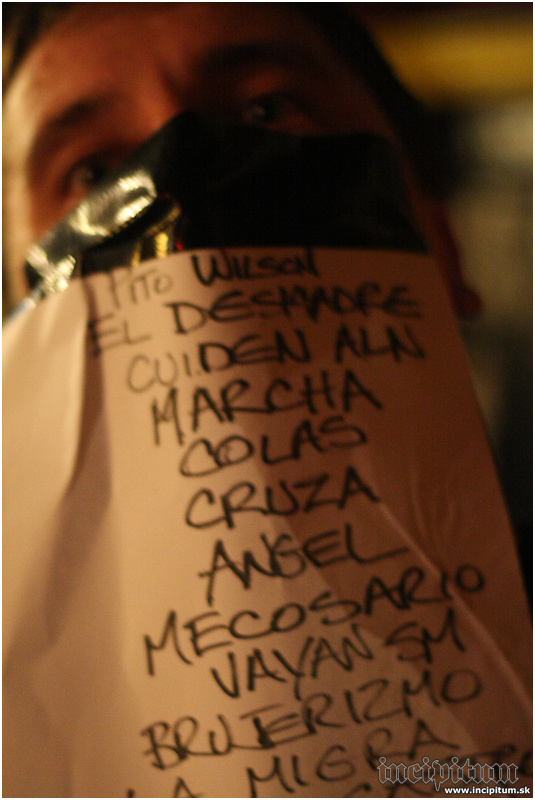 PITO WILSON
EL DESMADRE
CUIDEN ALN
MARCHA
COLAS
CRUZA
ANGEL
MECOSARIO
VAYAN SM
BRUJERIZMO
LA MIGRA
incipitum
www.incipitum.sk